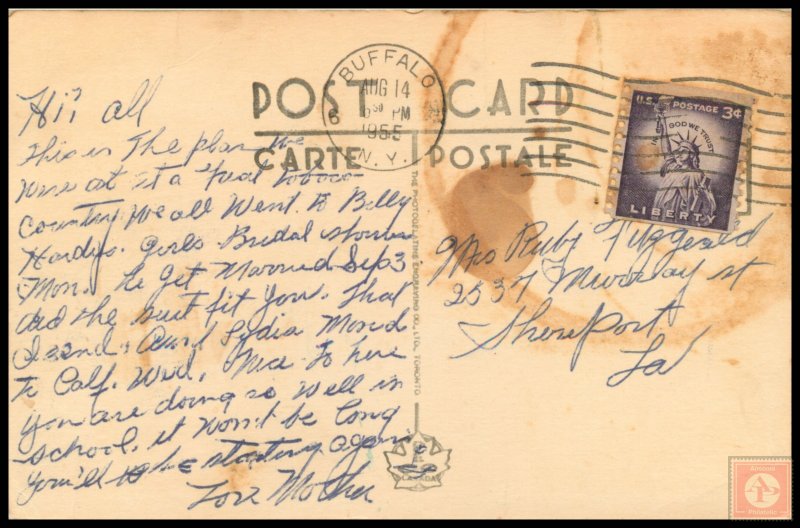 Hi, all
This is The plan we
Were at it a real tobacco
Country We all Went to Billy
Hardys. girls Bridal shower
Mon. he get Married Sep 3
did the suit fit you. That
I send. Lydia Moved
to Calf. Wed, Nice to here
you are doing so Well in
school, it Won't be long
you'll be starting again
Love Mother
POST CARD
CARTE POSTALE
BUFFALO
AUG 14
6 30 PM
1955
N.Y.
6
U.S. POSTAGE 3¢
IN GOD WE TRUST
LIBERTY
Mrs Ruby Fitzgerald
2537 Murray st
Shreveport
La
THE PHOTOGELATINE ENGRAVING CO., LTD. TORONTO
CANADA
Ansonia
Philatelic